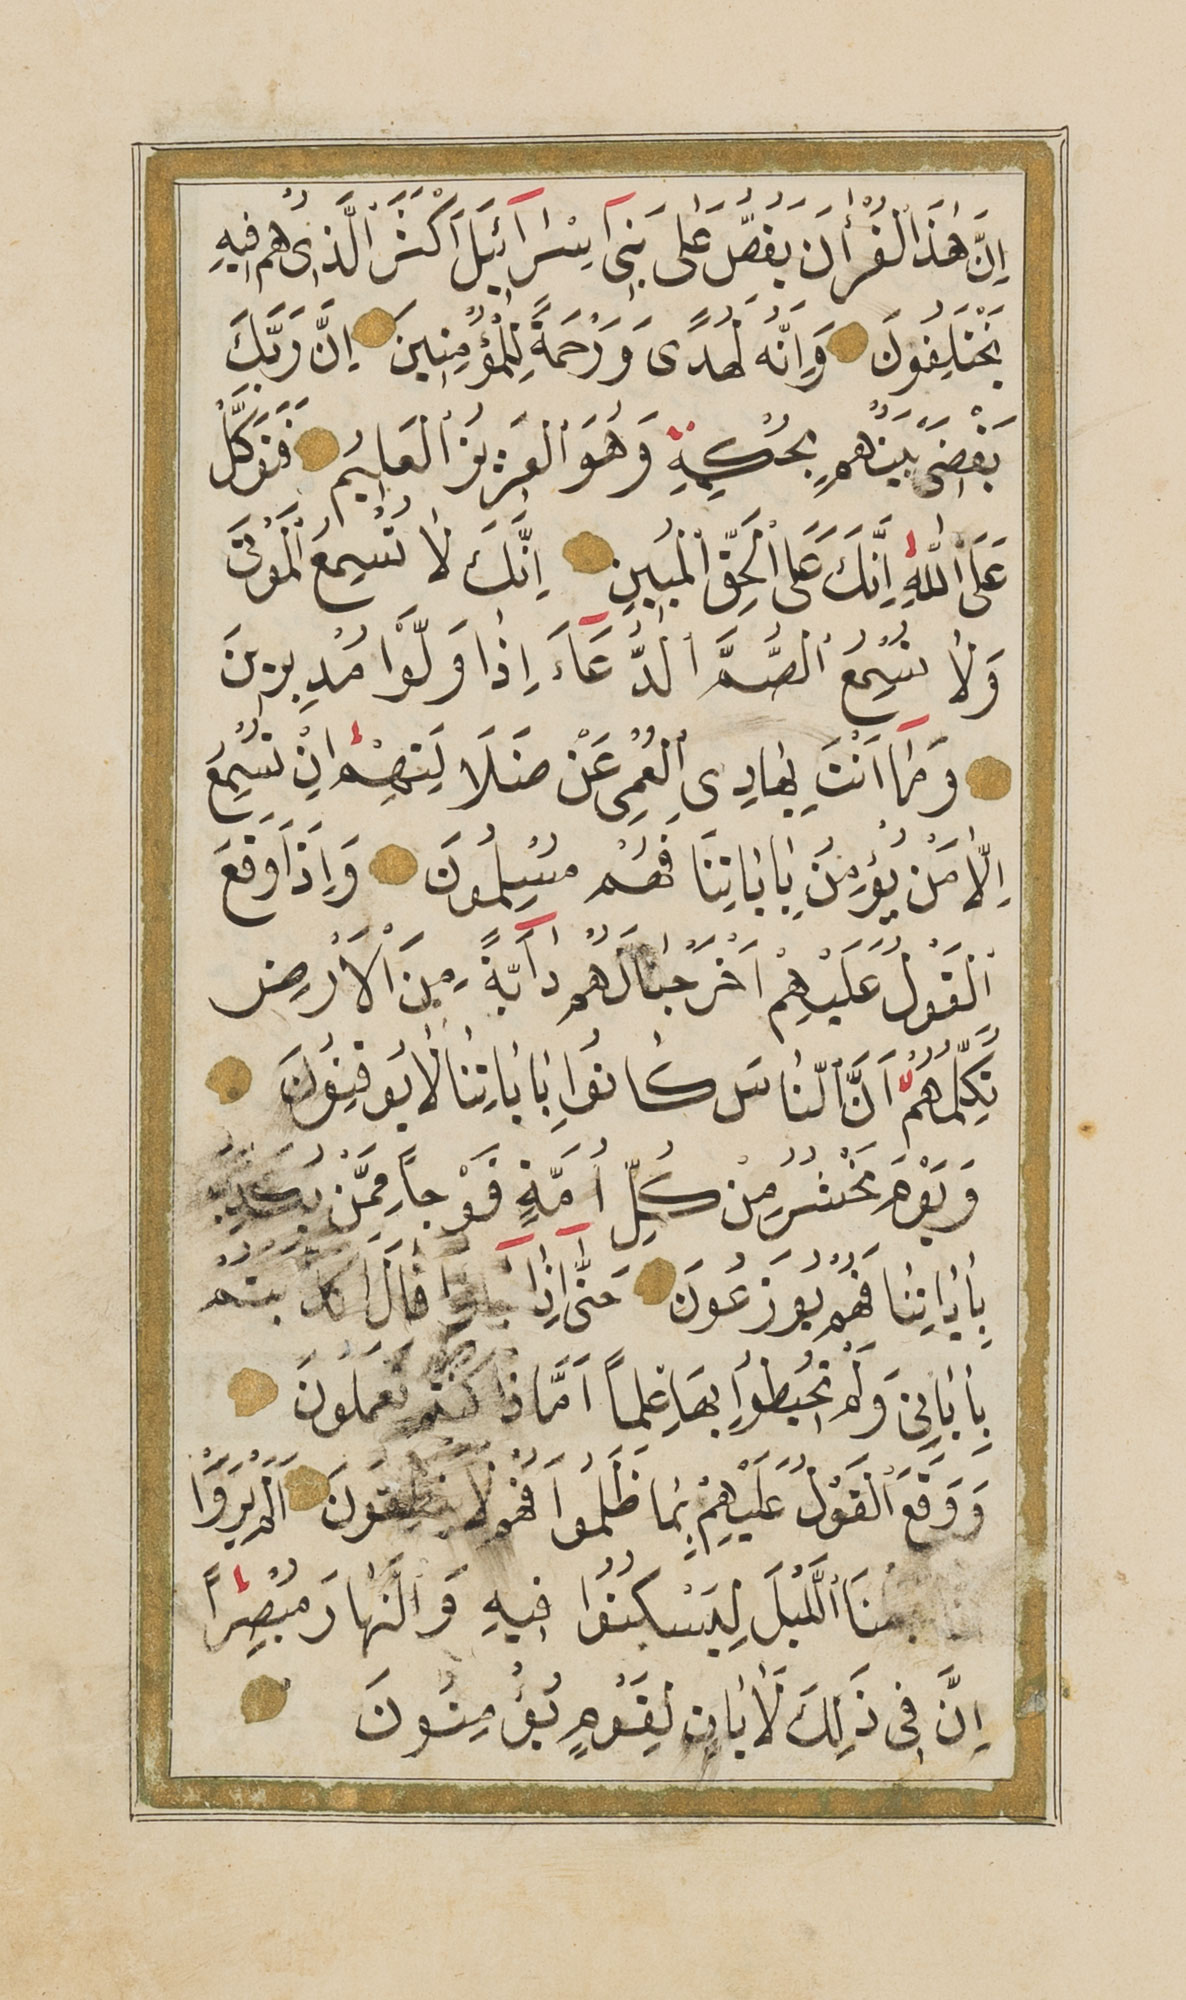 اِنَّ هٰذَا الْقُرْاٰنَ يَقُصُّ عَلٰى بَنِىٓ اِسْرَآئِيلَ اَكْثَرَ الَّذِى هُمْ فِيهِ
يَخْتَلِفُونَ وَاِنَّهُ لَهُدًى وَرَحْمَةٌ لِلْمُؤْمِنِينَ اِنَّ رَبَّكَ
يَقْضِى بَيْنَهُمْ بِحُكْمِهِ وَهُوَ الْعَزِيزُ الْعَلِيمُ فَتَوَكَّلْ
عَلَى اللّٰهِ اِنَّكَ عَلَى الْحَقِّ الْمُبِينِ اِنَّكَ لَا تُسْمِعُ الْمَوْتٰى
وَلَا تُسْمِعُ الصُّمَّ الدُّعَآءَ اِذَا وَلَّوْا مُدْبِرِينَ
وَمَآ اَنْتَ بِهَادِى الْعُمْىِ عَنْ ضَلَالَتِهِمْ اِنْ تُسْمِعُ
اِلَّا مَنْ يُؤْمِنُ بِاٰيَاتِنَا فَهُمْ مُسْلِمُونَ وَاِذَا وَقَعَ
الْقَوْلُ عَلَيْهِمْ اَخْرَجْنَا لَهُمْ دَآبَّةً مِنَ الْاَرْضِ
تُكَلِّمُهُمْ اَنَّ النَّاسَ كَانُوا بِاٰيَاتِنَا لَا يُوقِنُونَ
وَيَوْمَ نَحْشُرُ مِنْ كُلِّ اُمَّةٍ فَوْجًا مِمَّنْ يُكَذِّبُ
بِاٰيَاتِنَا فَهُمْ يُوزَعُونَ حَتّٰىٓ اِذَا جَآؤُا قَالَ اَكَذَّبْتُمْ
بِاٰيَاتِى وَلَمْ تُحِيطُوا بِهَا عِلْمًا اَمَّاذَا كُنْتُمْ تَعْمَلُونَ
وَوَقَعَ الْقَوْلُ عَلَيْهِمْ بِمَا ظَلَمُوا فَهُمْ لَا يَنْطِقُونَ اَلَمْ يَرَوْا
الَّيْلَ لِيَسْكُنُوا فِيهِ وَالنَّهَارَ مُبْصِرًا
اِنَّ فِى ذٰلِكَ لَاٰيَاتٍ لِقَوْمٍ يُؤْمِنُونَ